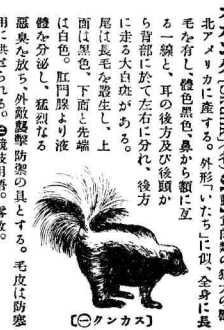 北アメリカに産する。外形「いたち」に似、全身に長
毛を有し、體色黑色、鼻から額に亙
る一線と、耳の後方及び後頭か
ら背部に於て左右に分れ、後方
に走る大白斑がある。
尾は長毛を叢生し、上
面は黑色、下面と先端
は白色。肛門腺より液
體を分泌し、猛烈なる
惡臭を放ち、外敵襲擊防禦の具とする。毛皮は防寒
用に供せられる。㊁競技用語。零敗。
【㊀クンカス】